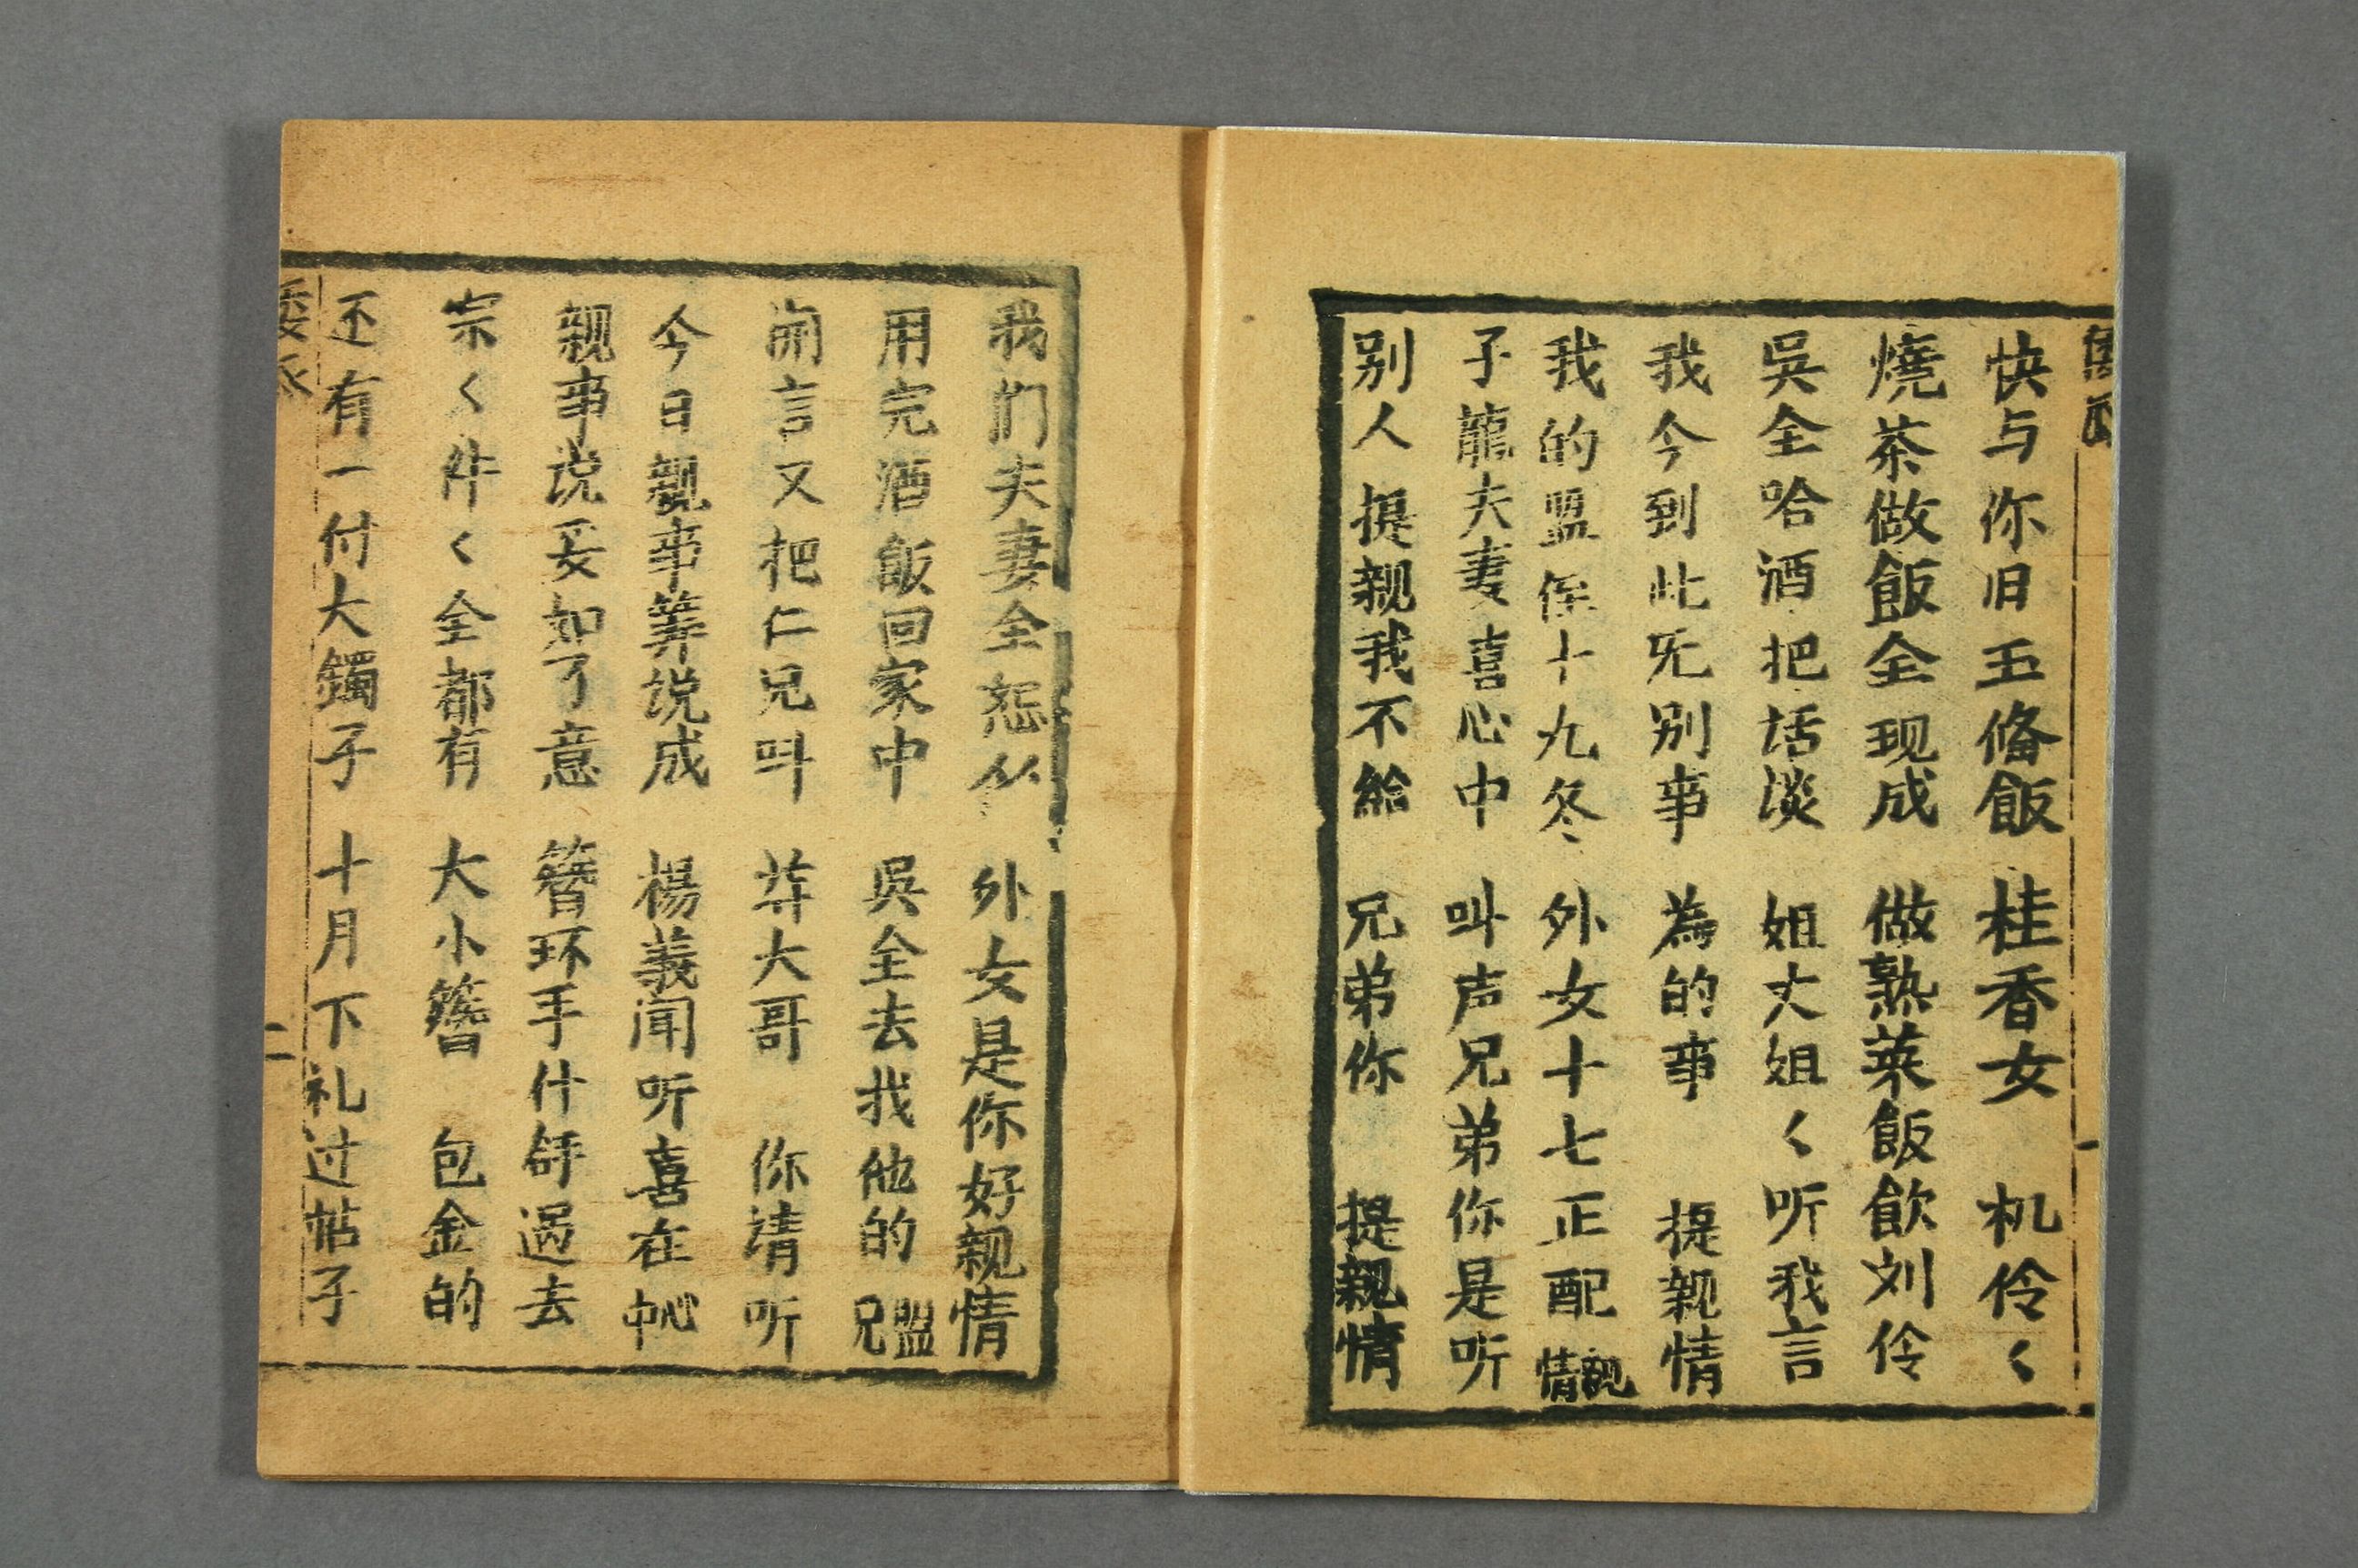 快与你旧玉俻飯　桂香女　机伶〱
燒茶做飯全现成　做熟菜飯飲刘伶
吳全哈酒把话淡　姐丈姐〱听我言
我今到此旡别事　為的事　提親情
我的盟侄十九冬　外女十七正配親情
子龍夫妻喜心中　叫声兄弟你是听
别人提親我不給　兄弟你　提親情
我们夫妻全恕从　外女是你好親情
用完酒飯回家中　吳全去找他的盟兄
開言又把仁兄叫　大哥　你请听
今日親事筭说成　楊義闻听喜在心中
親事说妥如了意　簪环手什過去
宗〱件〱全都有　大小簪　包金的
还有一付大鐲子　十月下礼过帖子
二